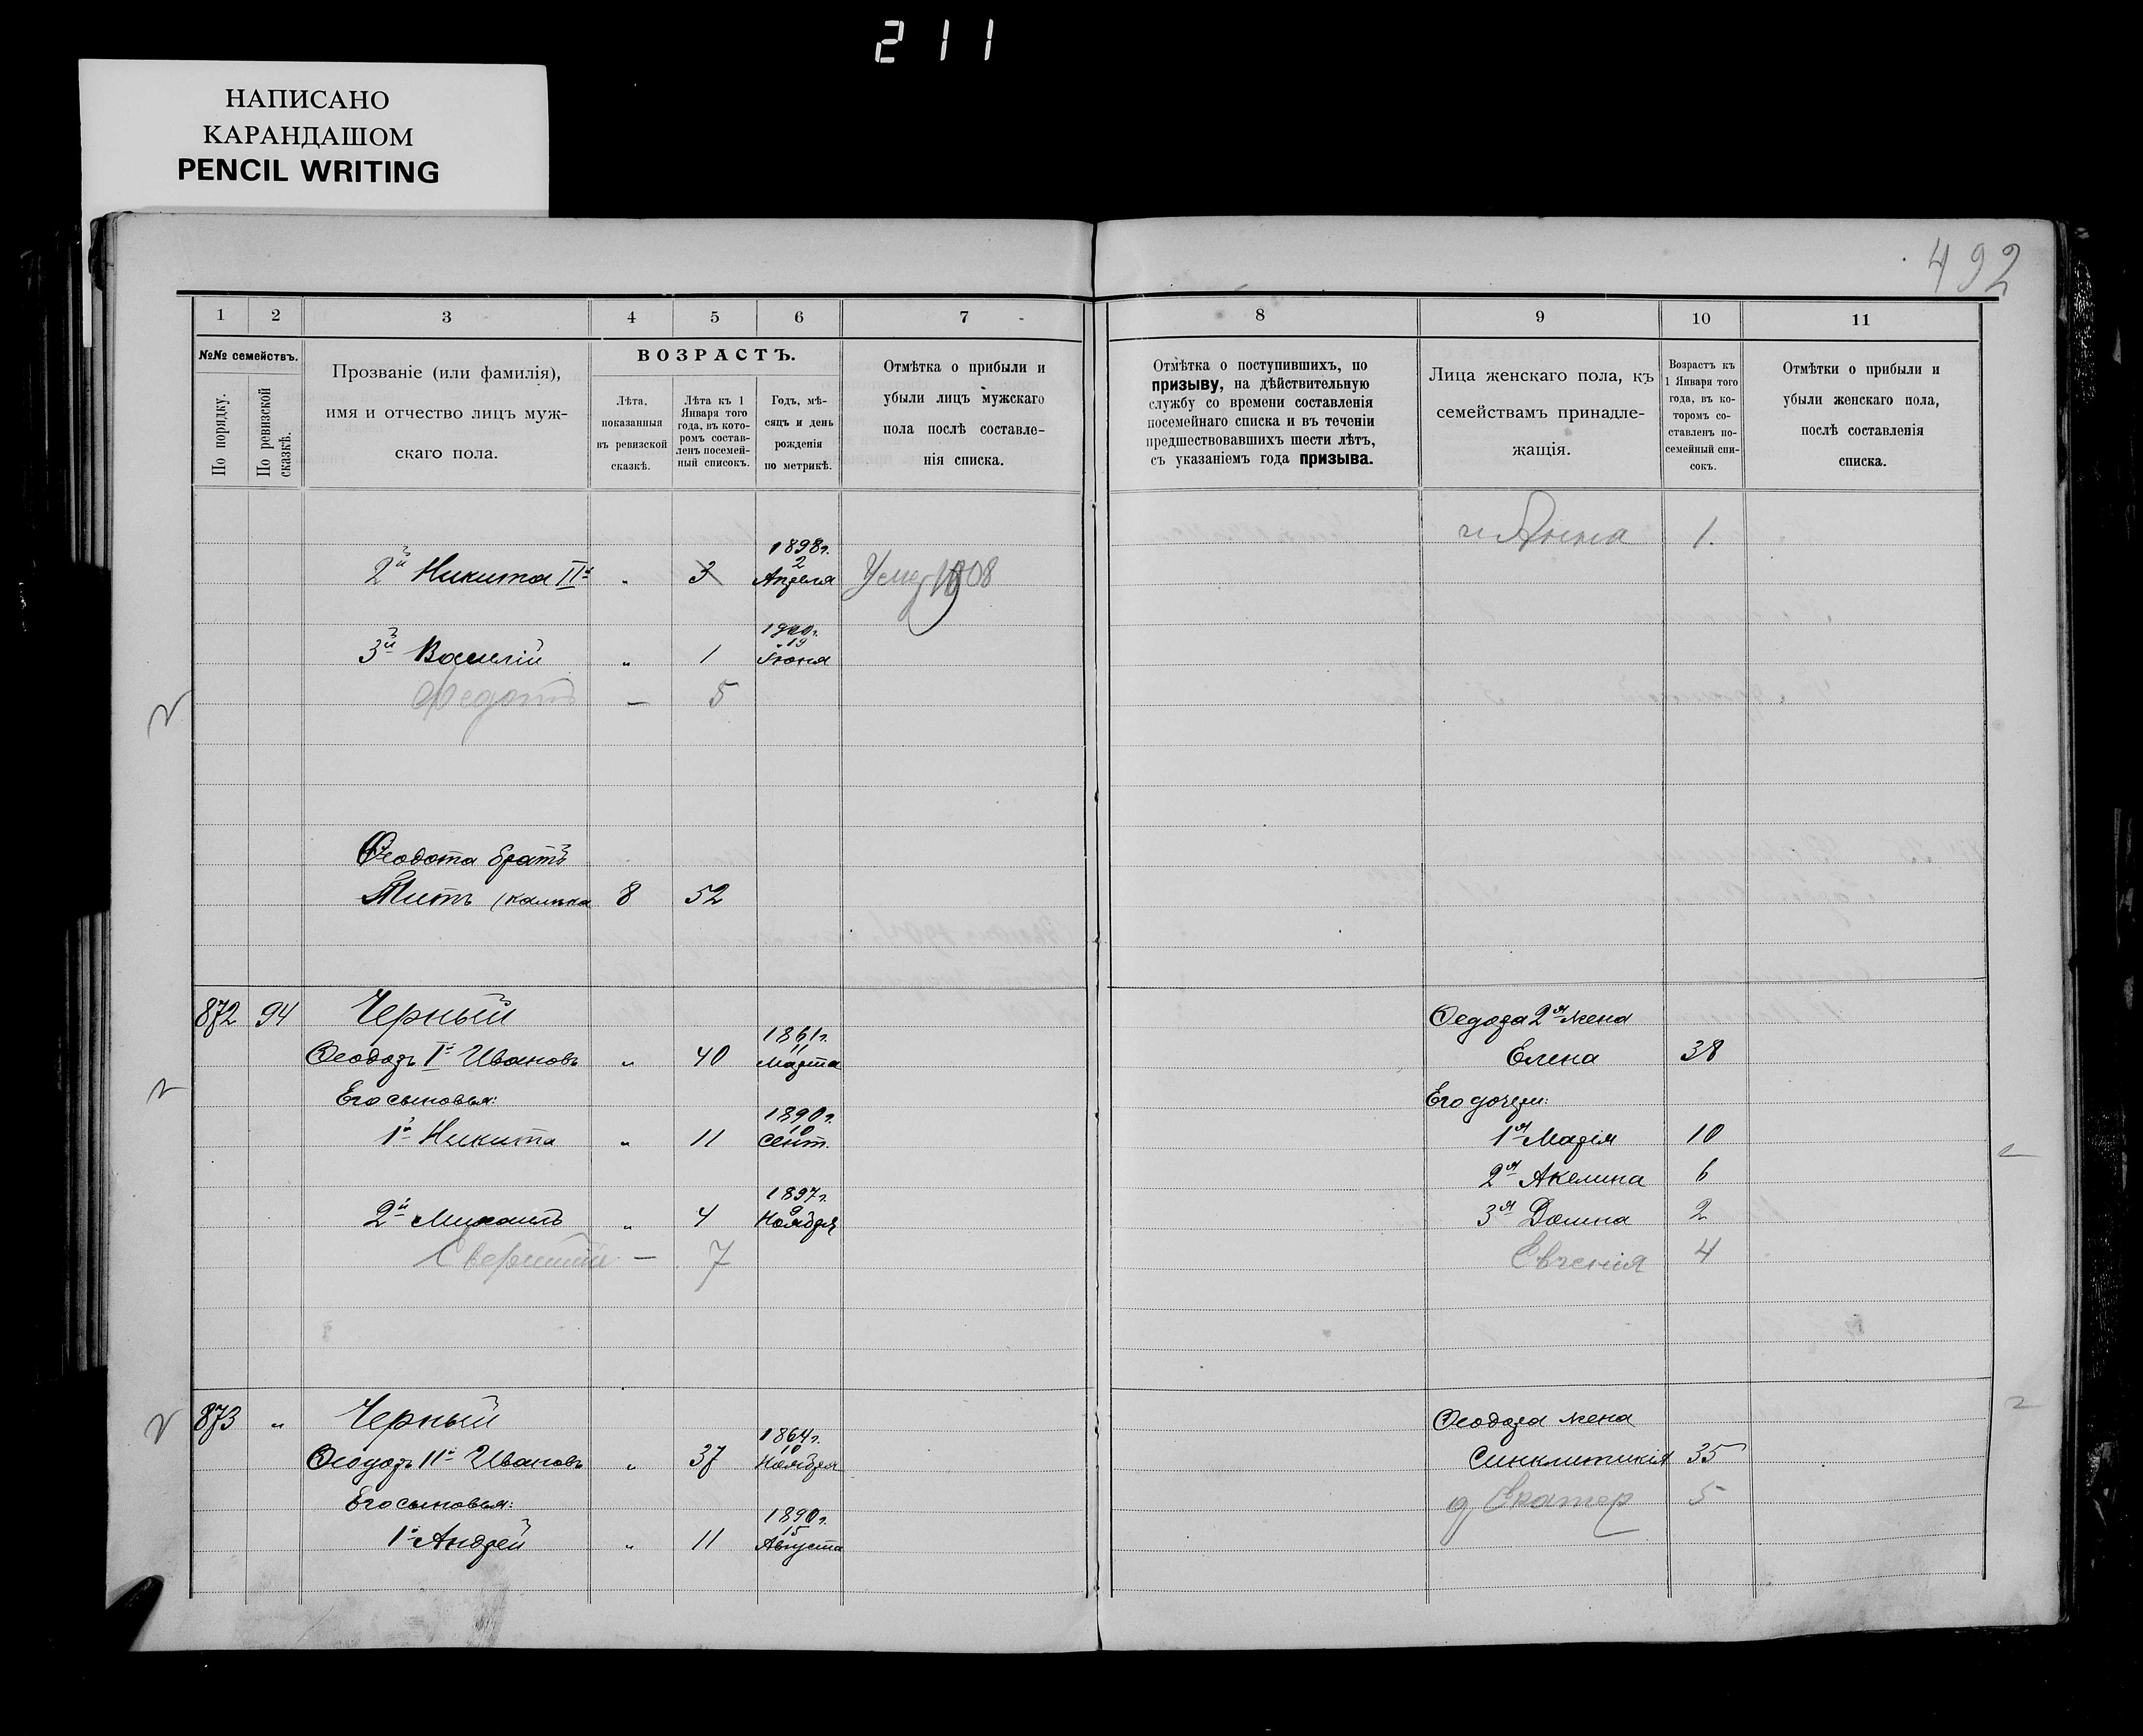 211
НАПИСАНО
КАРАНДАШОМ
PENCIL WRITING
492
1 2 3 4 5 6 7 8 9 10 11
№№ семействъ.
По порядку.
По ревизской сказкѣ.
Прозваніе (или фамилія),
имя и отчество лицъ муж-
скаго пола.
ВОЗРАСТЪ.
Лѣта,
показанныя
въ ревизской
сказкѣ.
Лѣта къ 1
Января того
года, въ кото-
ромъ состав-
ленъ посемей-
ный списокъ.
Годъ, мѣ-
сяцъ и день
рожденія
по метрикѣ.
Отмѣтка о прибыли и
убыли лицъ мужскаго
пола послѣ составле-
нія списка.
Отмѣтка о поступившихъ, по
призыву, на дѣйствительную
службу со времени составленія
посемейнаго списка и въ теченіи
предшествовавшихъ шести лѣтъ,
съ указаніемъ года призыва.
Лица женскаго пола, къ
семействамъ принадле-
жащія.
Возрастъ къ
1 Января того
года, въ ко-
торомъ со-
ставленъ по-
семейный спи-
сокъ.
Отмѣтки о прибыли и
убыли женскаго пола,
послѣ составленія
списка.
Анна 1.
1898г.
2й Никита IIй " 3 2 Апреля Умер 1908
1900г.
3й Василій " 1 19 Іюня
Федотъ — 5
Ѳеодота братъ
Титъ (калѣка 8 52
872 94 Черный Ѳедора 2я жена
1861г.
Ѳеодоръ Iй Ивановъ " 40 11 Марта Елена 38
Его сыновья: Его дочери:
1890г.
1й Никита " 11 10 Сент. 1я Марія 10
2я Акелина 6
1897г.
2й Михаилъ " 4 9 Ноября 3я Домна 2
— 7 Евгенія 4
873 " Черный Ѳеодора жена
1864г.
Ѳеодоръ IIй Ивановъ " 37 10 Ноября Синклитикія 35
Его сыновья: д Екатер 5
1890г.
1й Андрей " 11 15 Августа